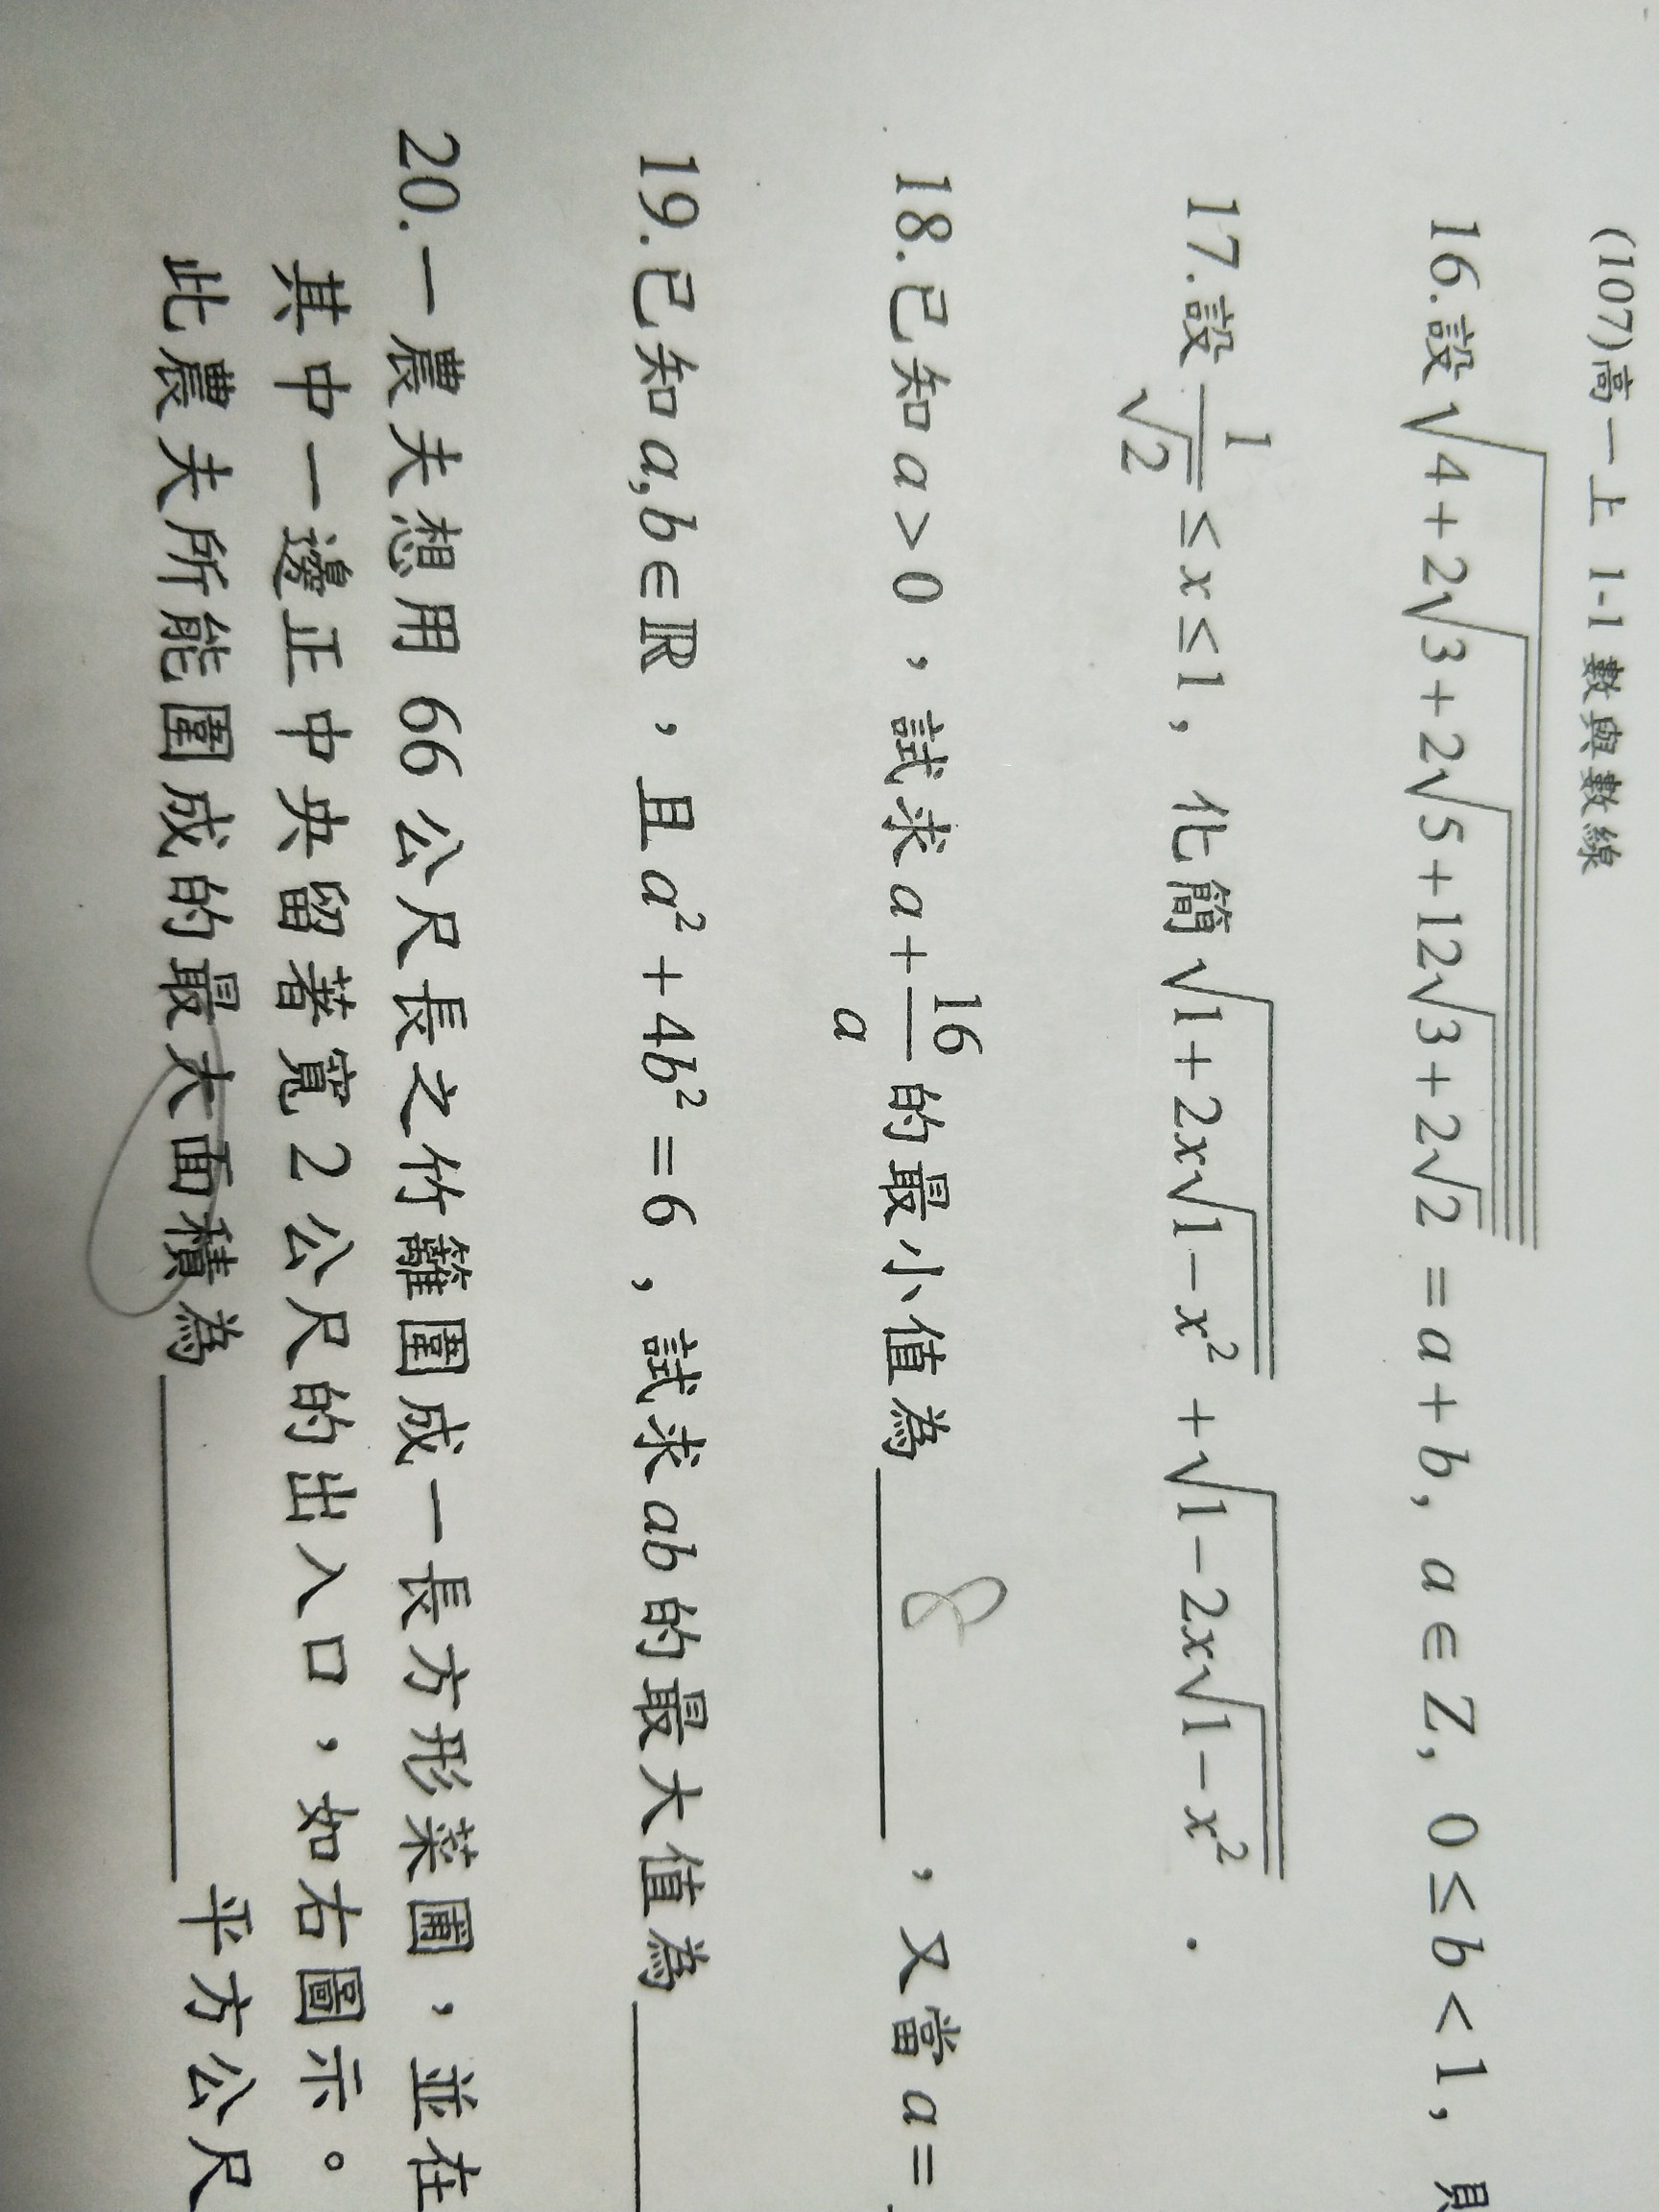 (107)高一上 1-1 數與數線
16.設√(4+2√(3+2√(5+12√(3+2√2)))) = a+b, a∈Z, 0≤b<1,
17.設 1/√2 ≤ x ≤ 1, 化簡 √(1+2x√(1−x²)) + √(1−2x√(1−x²)) .
18.已知 a>0,試求 a+16/a 的最小值為 8 ,又當 a=
19.已知 a,b∈ℝ,且 a²+4b²=6,試求 ab 的最大值為
20.一農夫想用 66 公尺長之竹籬圍成一長方形菜圃,並在
其中一邊正中央留著寬 2 公尺的出入口,如右圖示。
此農夫所能圍成的最大面積為 平方公尺